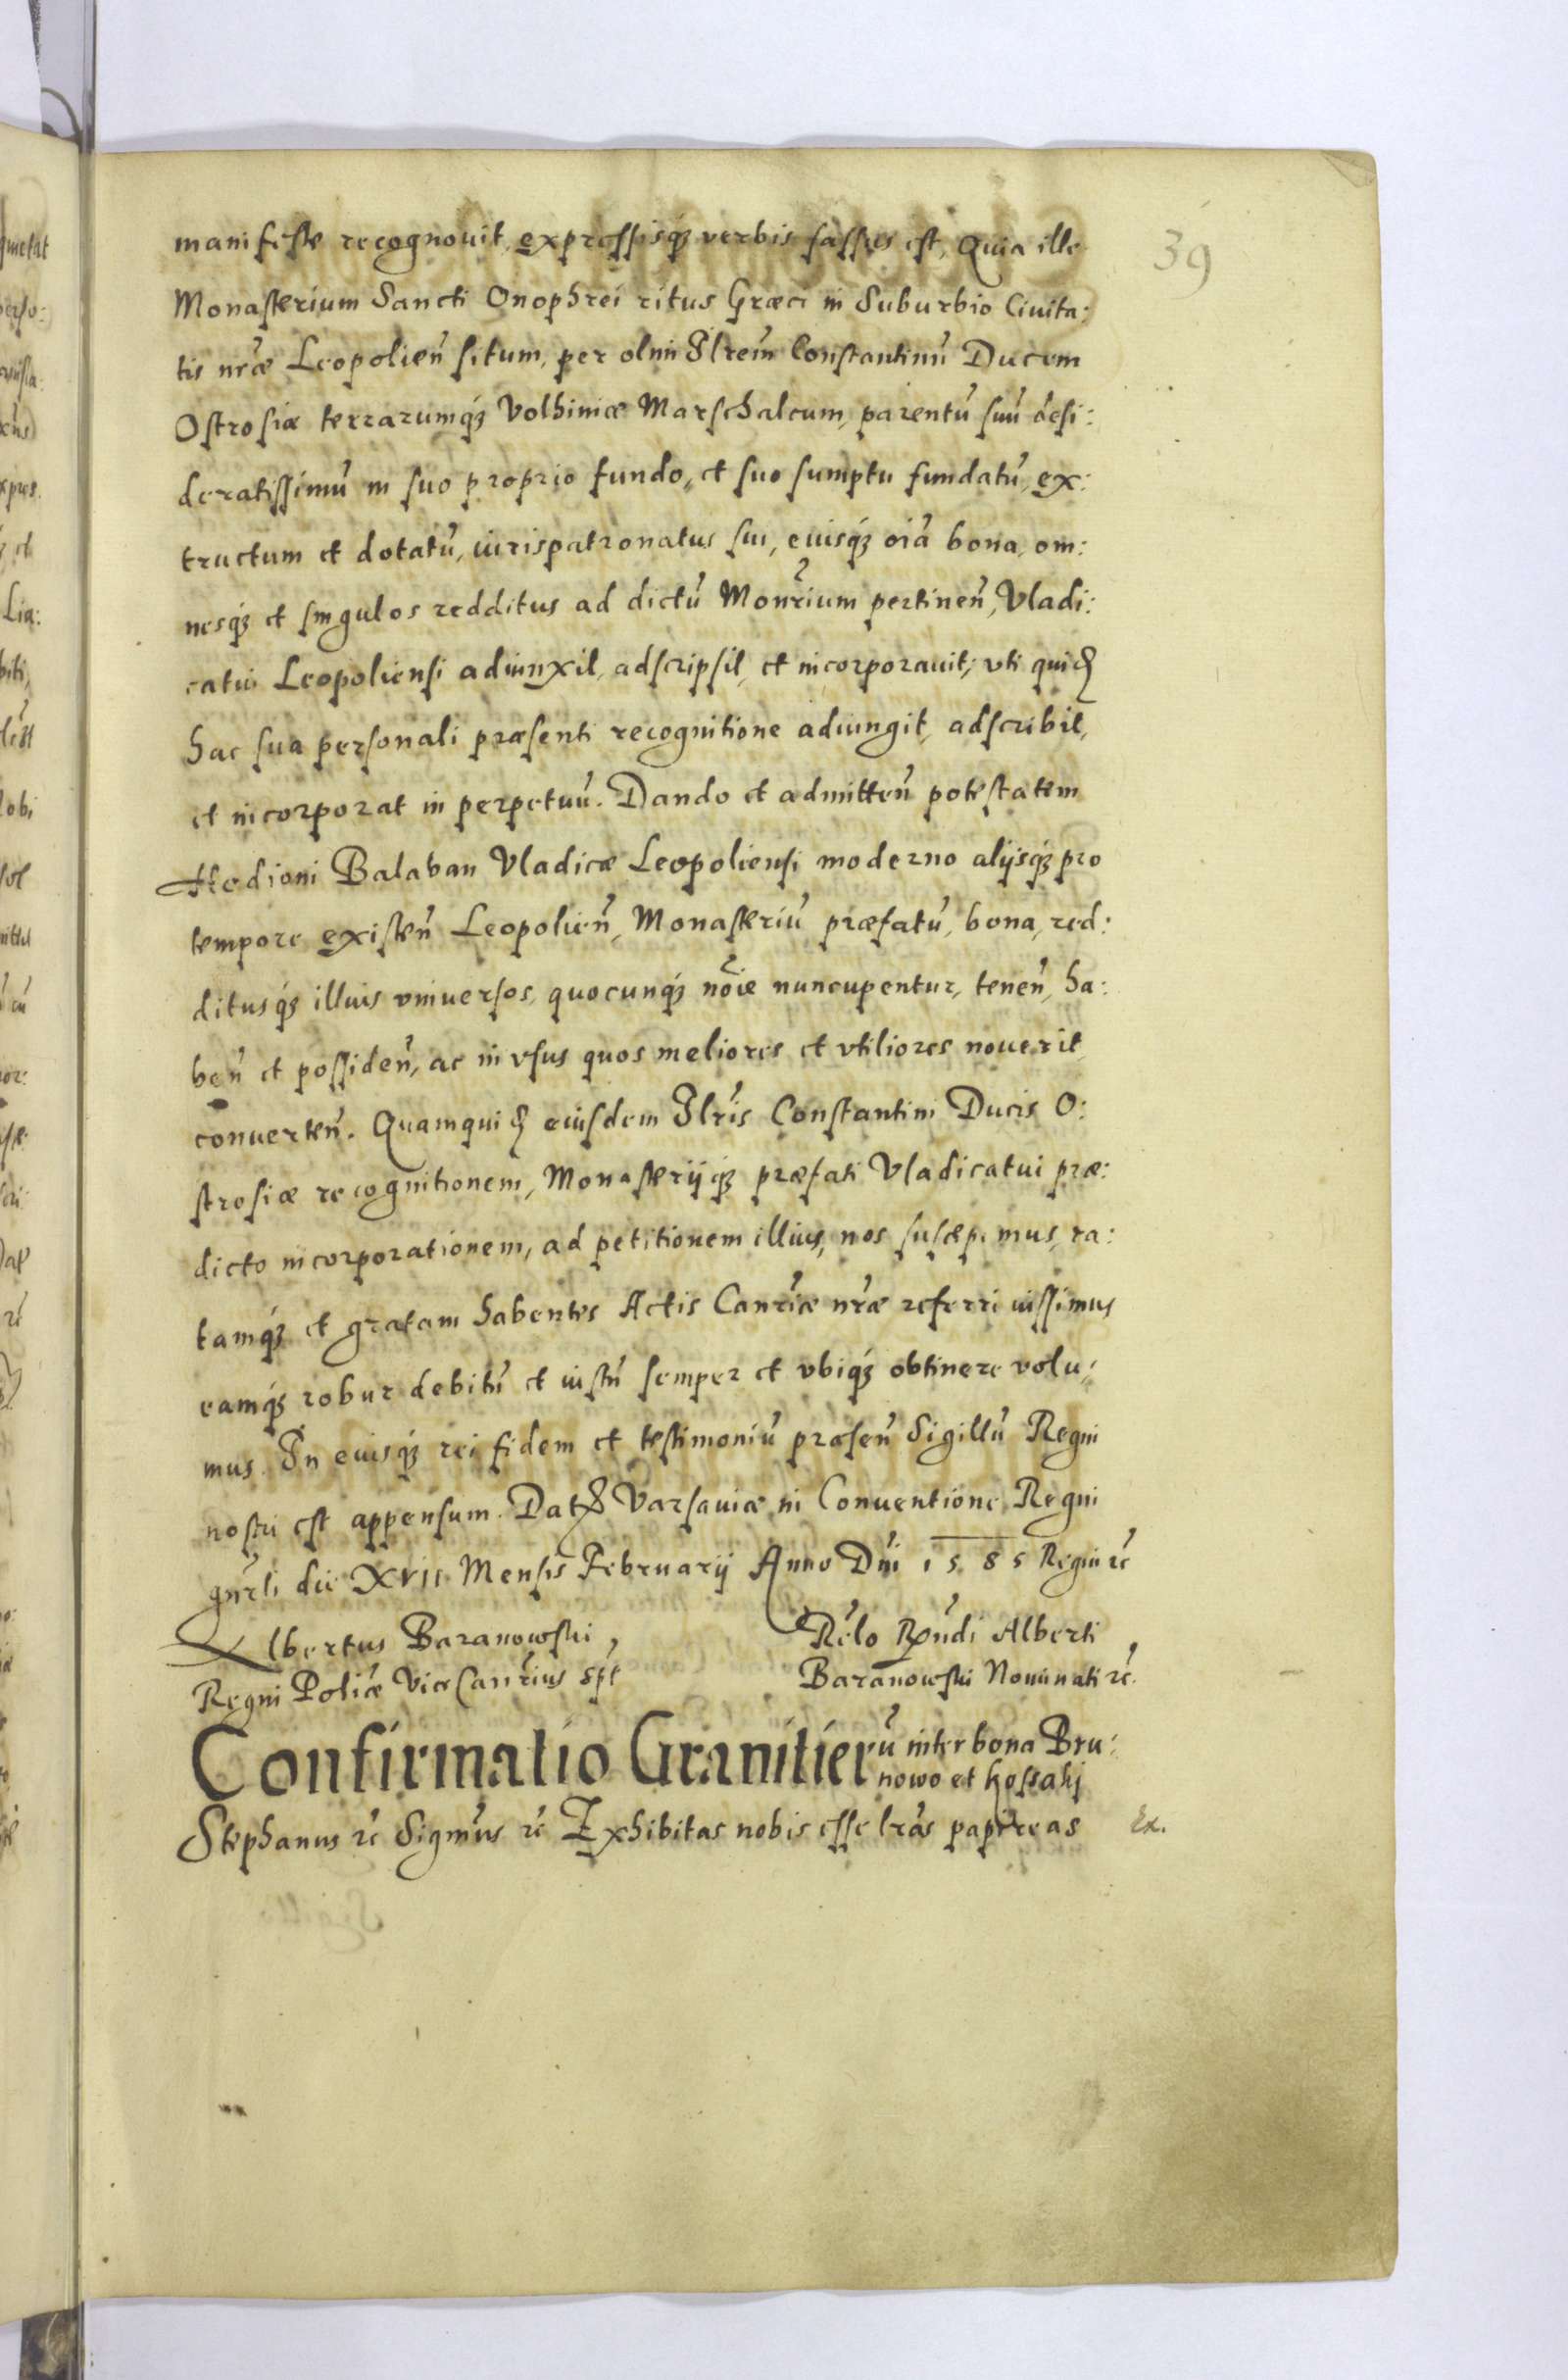 39
manifeste recognouit, expressisq́ꝫ verbis fassus est, Quia ille
Monasterium Sancti Onophrei ritus Græci in Suburbio Ciuita:
tis nr̃æ Leopolien̄ situm, per olim Illrem̃ Constantinū Ducem
Ostrosiæ terrarumq́ꝫ Volhiniæ Marschalcum, parentū suū desi:
deratissimū in suo proprio fundo, et suo sumptu fundatū, ex:
tructum et dotatū, iurispatronatus sui, eiusq́ꝫ oīa bona, om:
nesq́ꝫ et singulos redditus ad dictū Monr̃ium pertinen̄, Vladi:
catui Leopoliensi adiunxit, adscripsit, et incorporauit, vti quidē
hac sua personali præsenti recognitione adiungit, adscribit,
et incorporat in perpetuū. Dando et admitten̄ potestatem
Hedioni Balaban Vladicæ Leopoliensi moderno alijsq́ꝫ pro
tempore existen̄ Leopolien̄, Monasteriū præfatū, bona, red:
ditusq́ꝫ illius vniuersos, quocunq́ꝫ noīe nuncupentur, tenen̄, ha:
ben̄ et possiden̄, ac in vsus quos meliores et vtiliores nouerit
conuerten̄. Quamquidē eiusdem Illris̃ Constantini Ducis O:
strosiæ recognitionem, Monasterijq́ꝫ præfati Vladicatui præ:
dicto incorporationem, ad petitionem illius, nos suscepimus, ra:
tamq́ꝫ et gratam habentes Actis Canr̃iæ nr̃æ referri iussimus
eamq́ꝫ robur debitū et iustū semper et vbiq́ꝫ obtinere volu:
mus. In cuiusq́ꝫ rei fidem et testimoniū præsen̄ Sigillū Regni
nostri est appensum. Datꝫ Varsauiæ in Conuentione Regni
gnr̃li die XVII Mensis Februarij Anno Dn̄i 1585 Regni ꝛc̃
Albertus Baranowski
Regni Polīæ Vice Canr̃ius sp̄t
Rēlo Rn̄di Alberti
Baranowski Nominati ꝛc̃.
Confirmatio Granitierū inter bona Bru:
nowo et Kossaki
Stephanus ꝛc̃ Sigm̃us ꝛc̃ Exhibitas nobis esse lr̃as papireas
Ex.